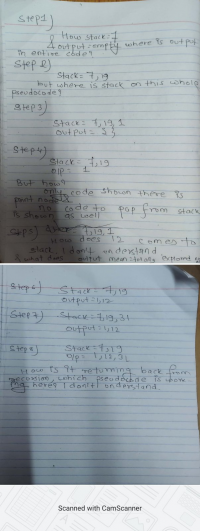 Step 1)
How stack: 7
& output: empty where is output
in entire code?
Step 2)
Stack = 7, 19
but where is stack on this whole
pseudocode?
Step 3)
Stack = 7, 19, 1
Output = 1
Step 4)
Stack = 7, 19
o/p = 1
But how?
only code shown there is
code to pop from stack
is shown as well
Step 5) Stack = 7, 19, 1
How does 12 comes to
stack, I don't understand
& what does output mean
Step 6) Stack = 7, 19
output = 1, 12
Step 7) Stack = 7, 19, 31
output = 1, 12
Step 8) Stack = 7, 19
o/p = 1, 12, 31
How is it returning back from
recursion, which pseudocode is
here? I don't understand.
Scanned with CamScanner